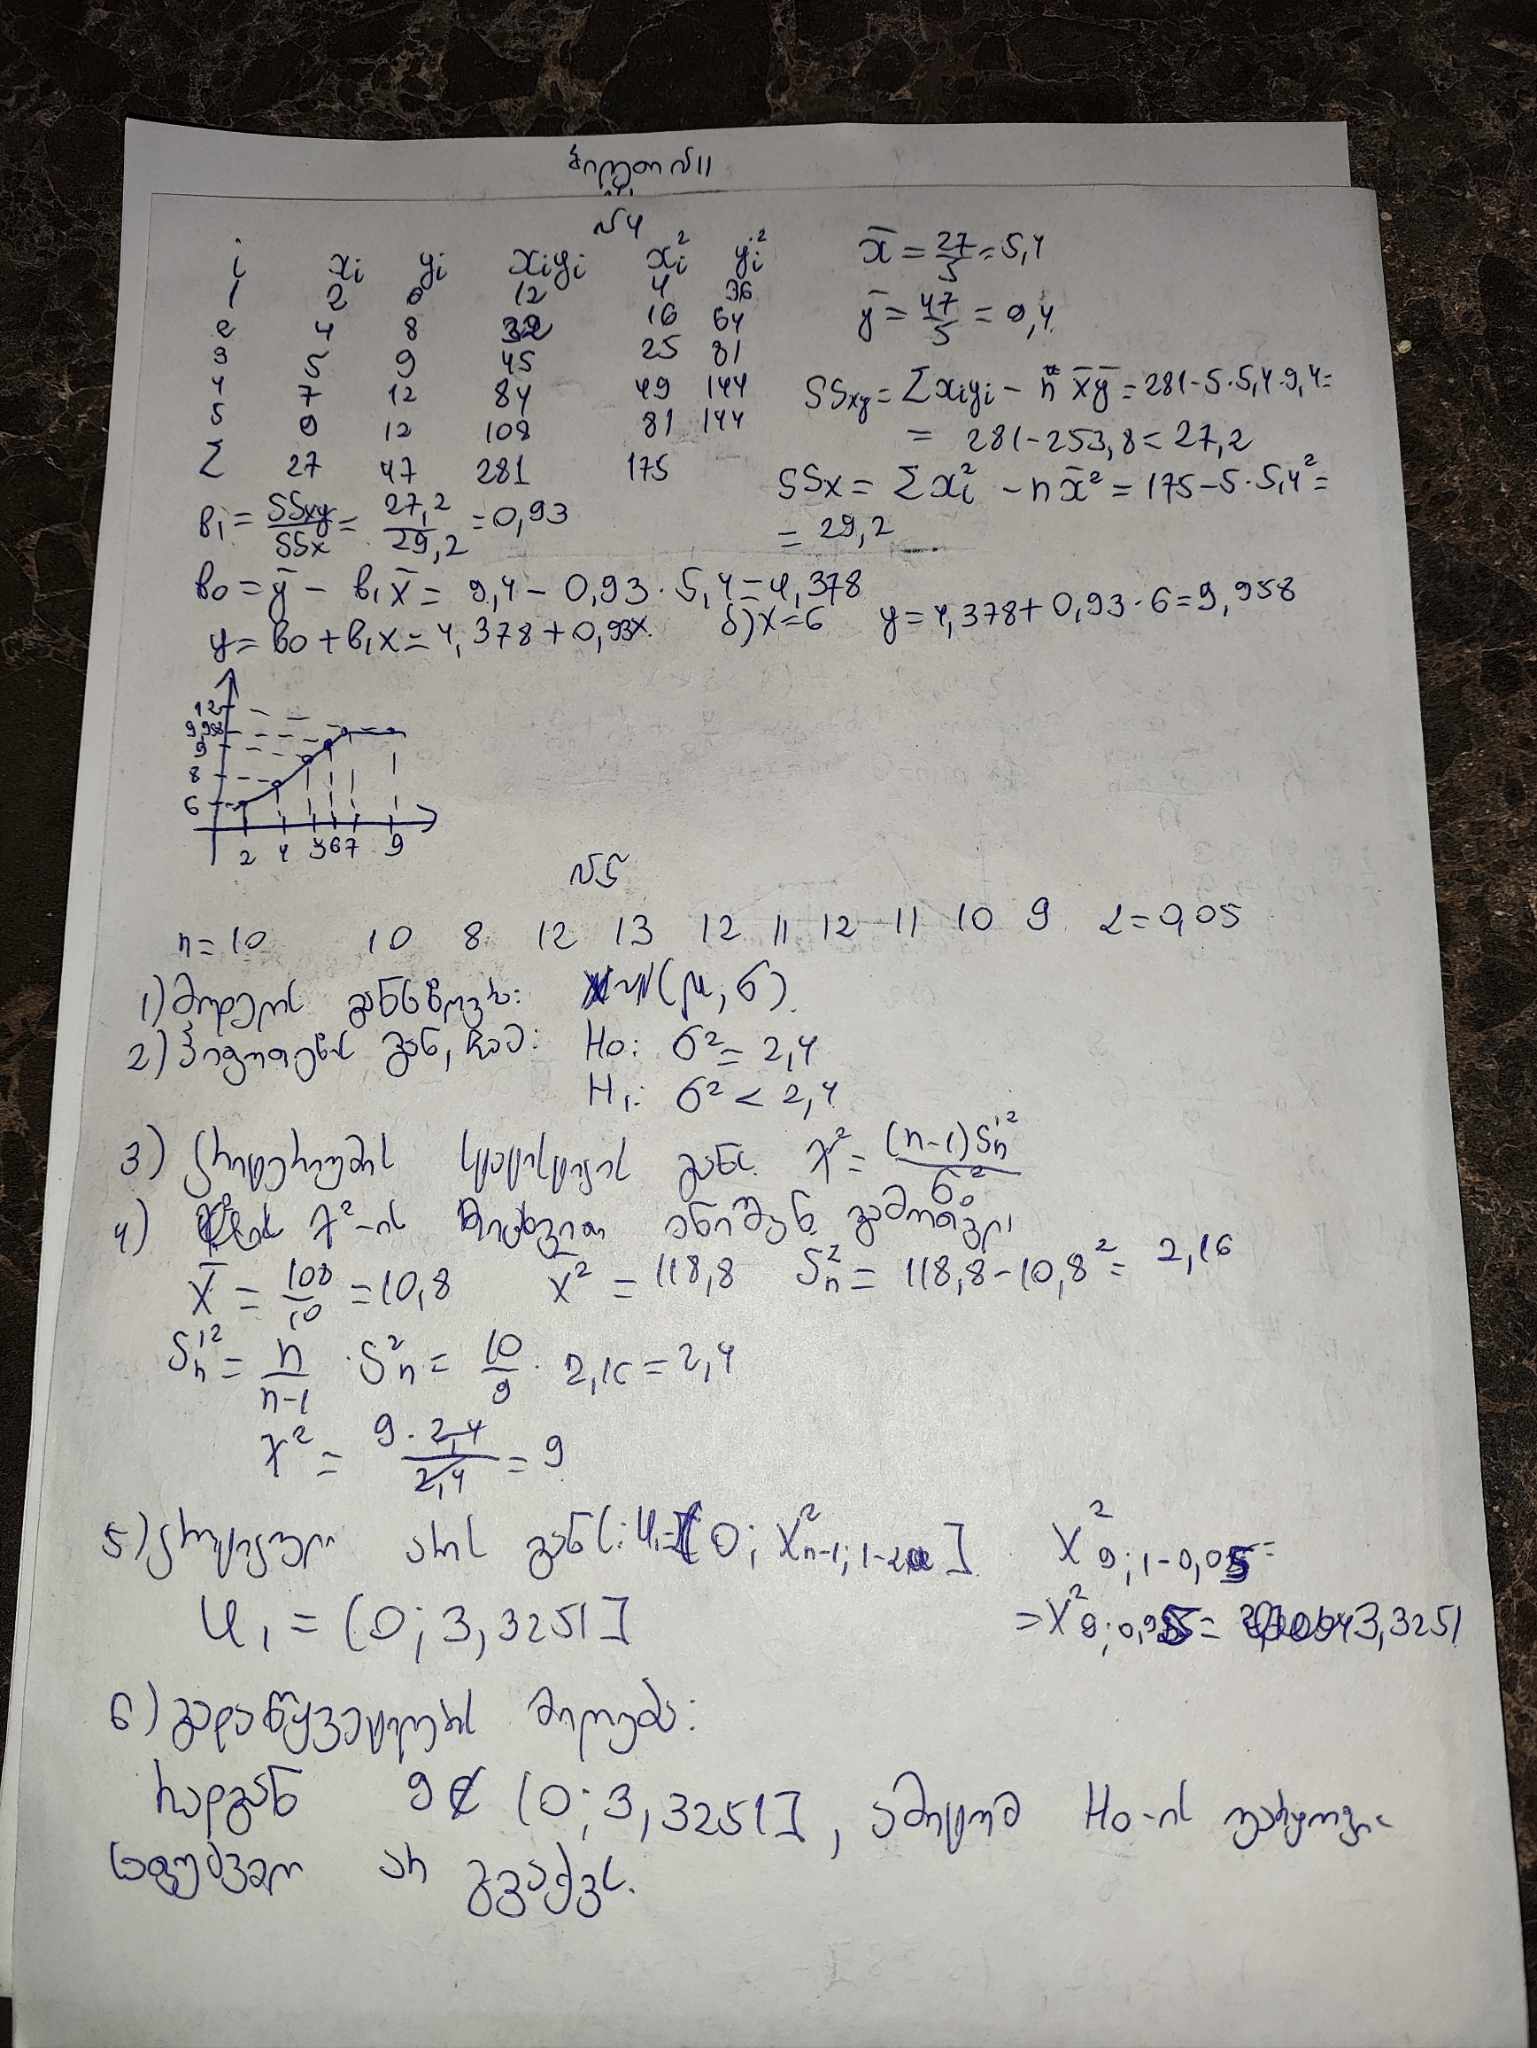 ბილეთი N11
N4
i xi yi xiyi xi² yi²
1 2 6 12 4 36
2 4 8 32 16 64
3 5 9 45 25 81
4 7 12 84 49 144
5 9 12 108 81 144
Σ 27 47 281 175
x̄ = 27/5 = 5,4
ȳ = 47/5 = 9,4
SSxy = Σxiyi - n x̄ȳ = 281 - 5·5,4·9,4 =
= 281 - 253,8 = 27,2
SSx = Σxi² - n x̄² = 175 - 5·5,4² =
= 29,2
b₁ = SSxy/SSx = 27,2/29,2 = 0,93
b₀ = ȳ - b₁x̄ = 9,4 - 0,93·5,4 = 4,378
y = b₀ + b₁x = 4,378 + 0,93x. ბ) x=6 y = 4,378 + 0,93·6 = 9,958
12
9,958
9
8
6
2 4 5 6 7 9
N5
n = 10 10 8 12 13 12 11 12 11 10 9 α = 0,05
1) მოდელის განსაზღვრა: X~N(μ; σ).
2) ჰიპოთეზის ჩამ: H₀: σ² = 2,4
H₁: σ² < 2,4
3) კრიტერიუმის სტატისტიკის განს. χ² = (n-1)Sn'²/σ₀²
4) χ²-ის რიცხვითი მნიშვნ. გამოთვლა
X̄ = 108/10 = 10,8 X² = 118,8 Sn² = 118,8 - 10,8² = 2,16
Sn'² = n/(n-1) · Sn² = 10/9 · 2,16 = 2,4
χ² = 9·2,4/2,4 = 9
5) კრიტიკული არის განს: U₁ = (0; χ²n-1; 1-α] χ²9; 1-0,05 =
U₁ = (0; 3,3251] = χ²9; 0,95 = 3,3251
6) გადაწყვეტილების მიღება:
რადგან 9 ∉ (0; 3,3251], ამიტომ H₀-ის უარყოფის
საფუძველი არ გვაქვს.